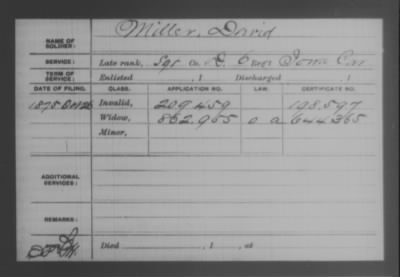 NAME OF SOLDIER: Miller, David
SERVICE: Late rank, Sgt Co. D. 6 Regt Iowa Cav
TERM OF SERVICE: Enlisted , 1 Discharged , 1
DATE OF FILING. CLASS. APPLICATION NO. LAW. CERTIFICATE NO.
1875 Invalid, 209.459 198.597
Widow, 862.965 644.365
Minor,
ADDITIONAL SERVICES:
REMARKS:
Died , 1 , at